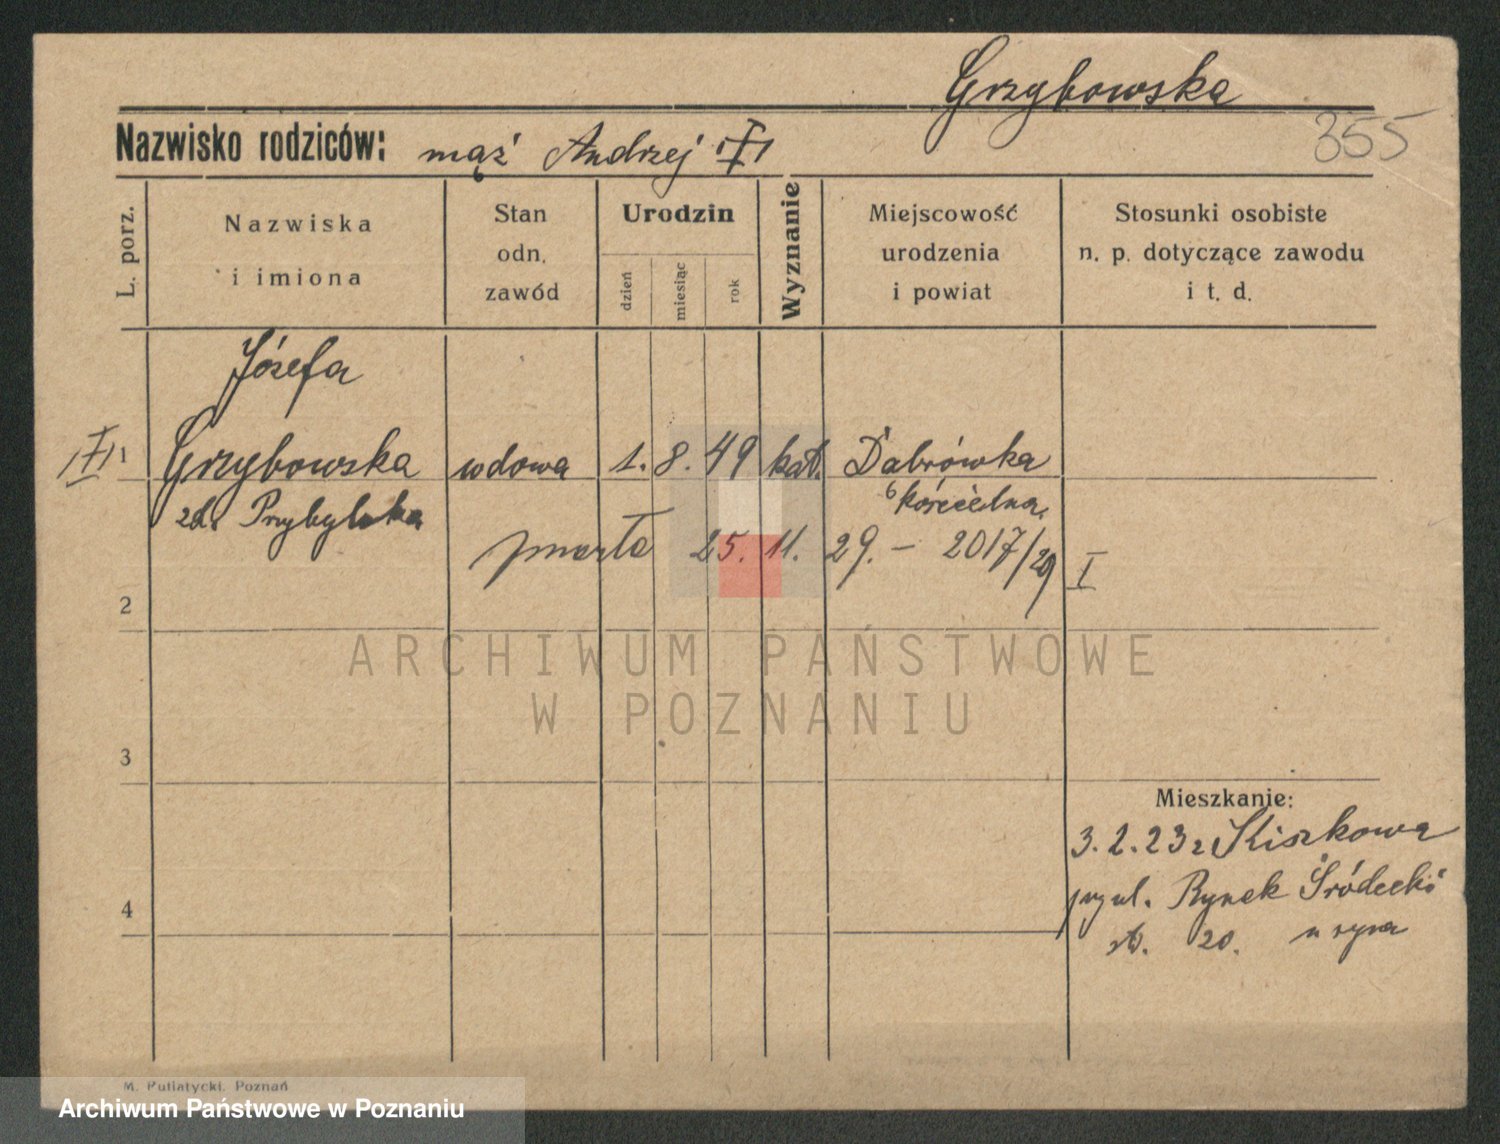 Grzybowska
355
Nazwisko rodziców: mąż Andrzej
L. porz.
Nazwiska i imiona
Stan odn. zawód
Urodzin
dzień
miesiąc
rok
Wyznanie
Miejscowość urodzenia i powiat
Stosunki osobiste n. p. dotyczące zawodu i t. d.
Józefa
1 Grzybowska wdowa 1. 8. 49 kat. Dabrówka
zd. Przybylska kościelna
zmarła 25. 11. 29. – 2017/29 I
2
3
4
Mieszkanie:
3. 2. 23 z Kiszkowa
przyul. Rynek Śródecki
20. u syna
M. Putiatycki, Poznań
ARCHIWUM PAŃSTWOWE
W POZNANIU
Archiwum Państwowe w Poznaniu